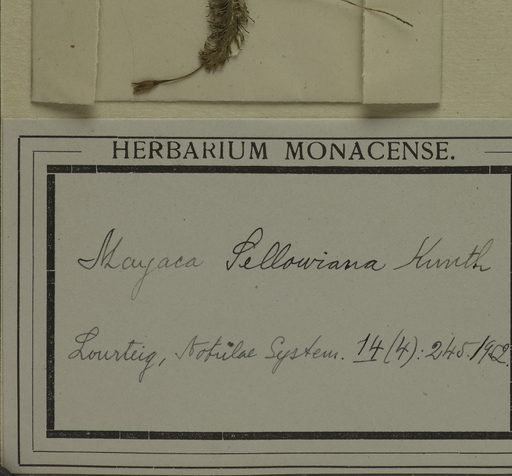 HERBARIUM MONACENSE.
Mayaca Sellowiana Kunth
Lourteig, Notulae System. 14(4): 245. 1952.